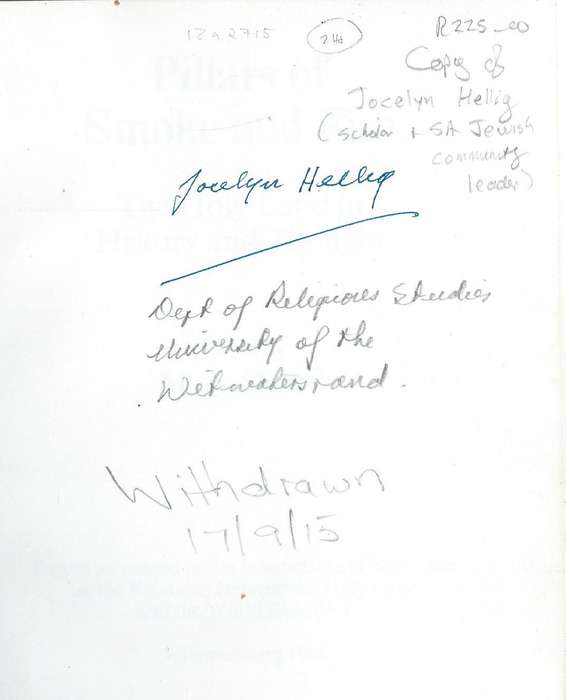 12a2715
2 Hd
R225-00
Copy of
Jocelyn Hellig
(scholar + SA Jewish
community
leader)
Jocelyn Hellig
Dept of Religious Studies
University of the
Witwatersrand.
Withdrawn
17/9/15
Pillars of
Smoke and Fire